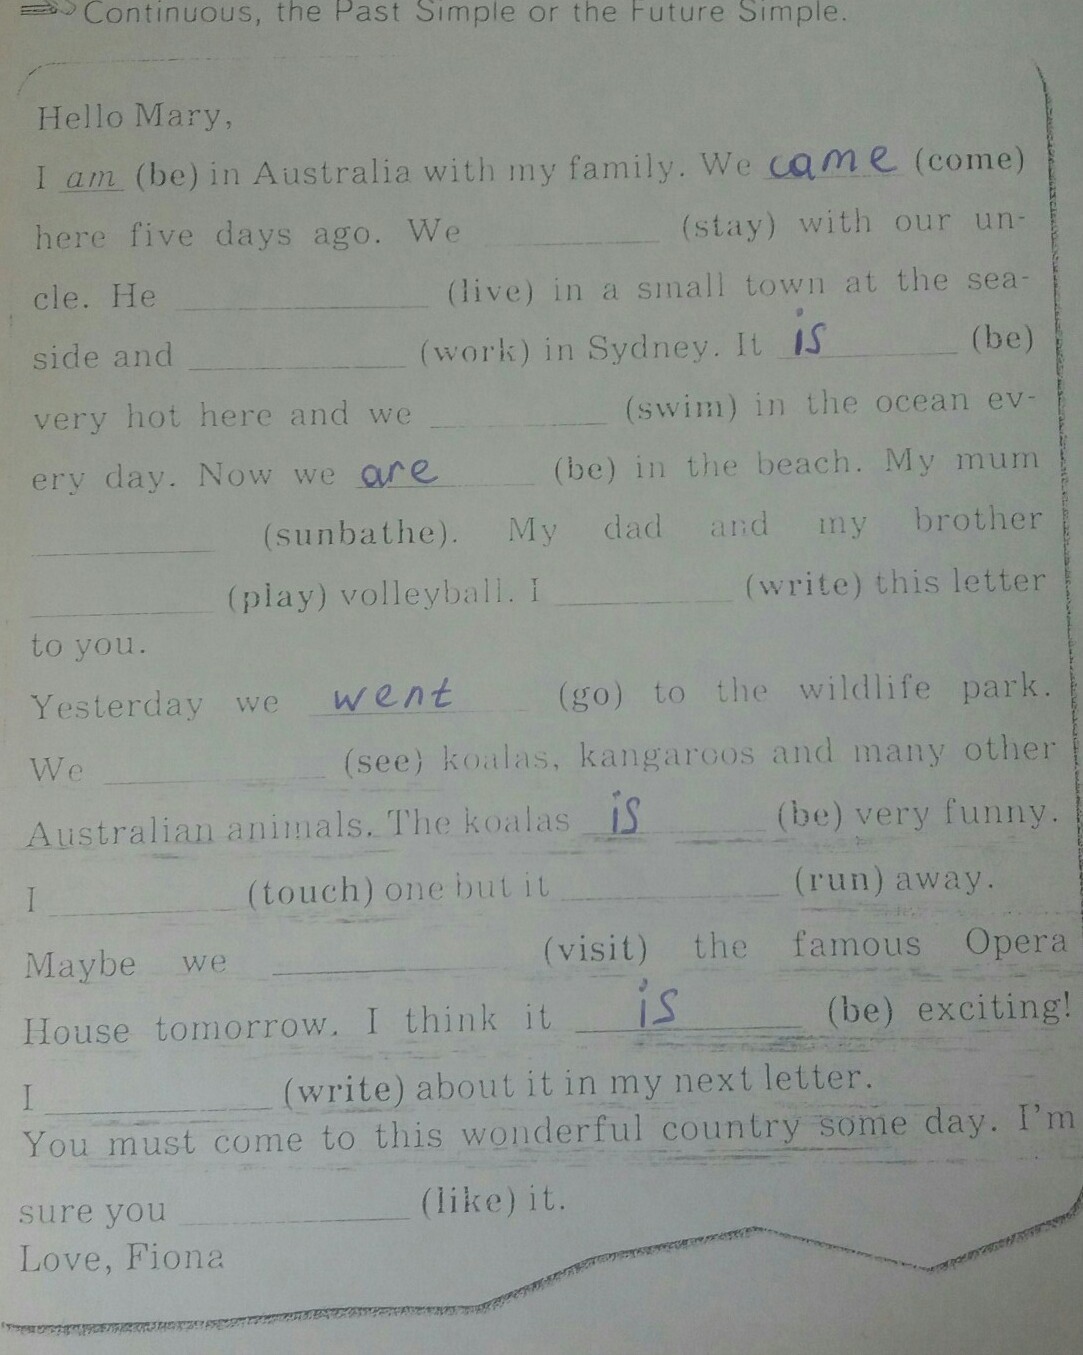 Continuous, the Past Simple or the Future Simple.
Hello Mary,
I am (be) in Australia with my family. We came (come)
here five days ago. We ________ (stay) with our un-
cle. He ________ (live) in a small town at the sea-
side and ________ (work) in Sydney. It is (be)
very hot here and we ________ (swim) in the ocean ev-
ery day. Now we are (be) in the beach. My mum
________ (sunbathe). My dad and my brother
________ (play) volleyball. I ________ (write) this letter
to you.
Yesterday we went (go) to the wildlife park.
We ________ (see) koalas, kangaroos and many other
Australian animals. The koalas is (be) very funny.
I ________ (touch) one but it ________ (run) away.
Maybe we ________ (visit) the famous Opera
House tomorrow. I think it is (be) exciting!
I ________ (write) about it in my next letter.
You must come to this wonderful country some day. I'm
sure you ________ (like) it.
Love, Fiona